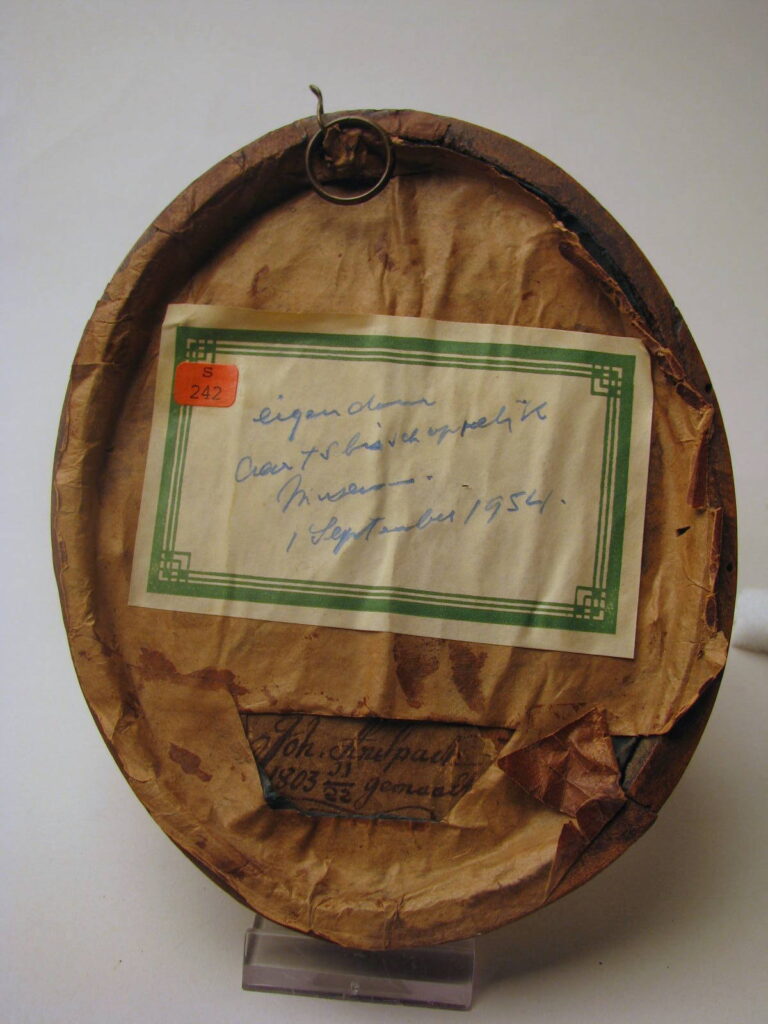 S
242
eigendom
Aartsbisschoppelijk
Museum.
1 September 1954.
Joh.
1803 gemaelt